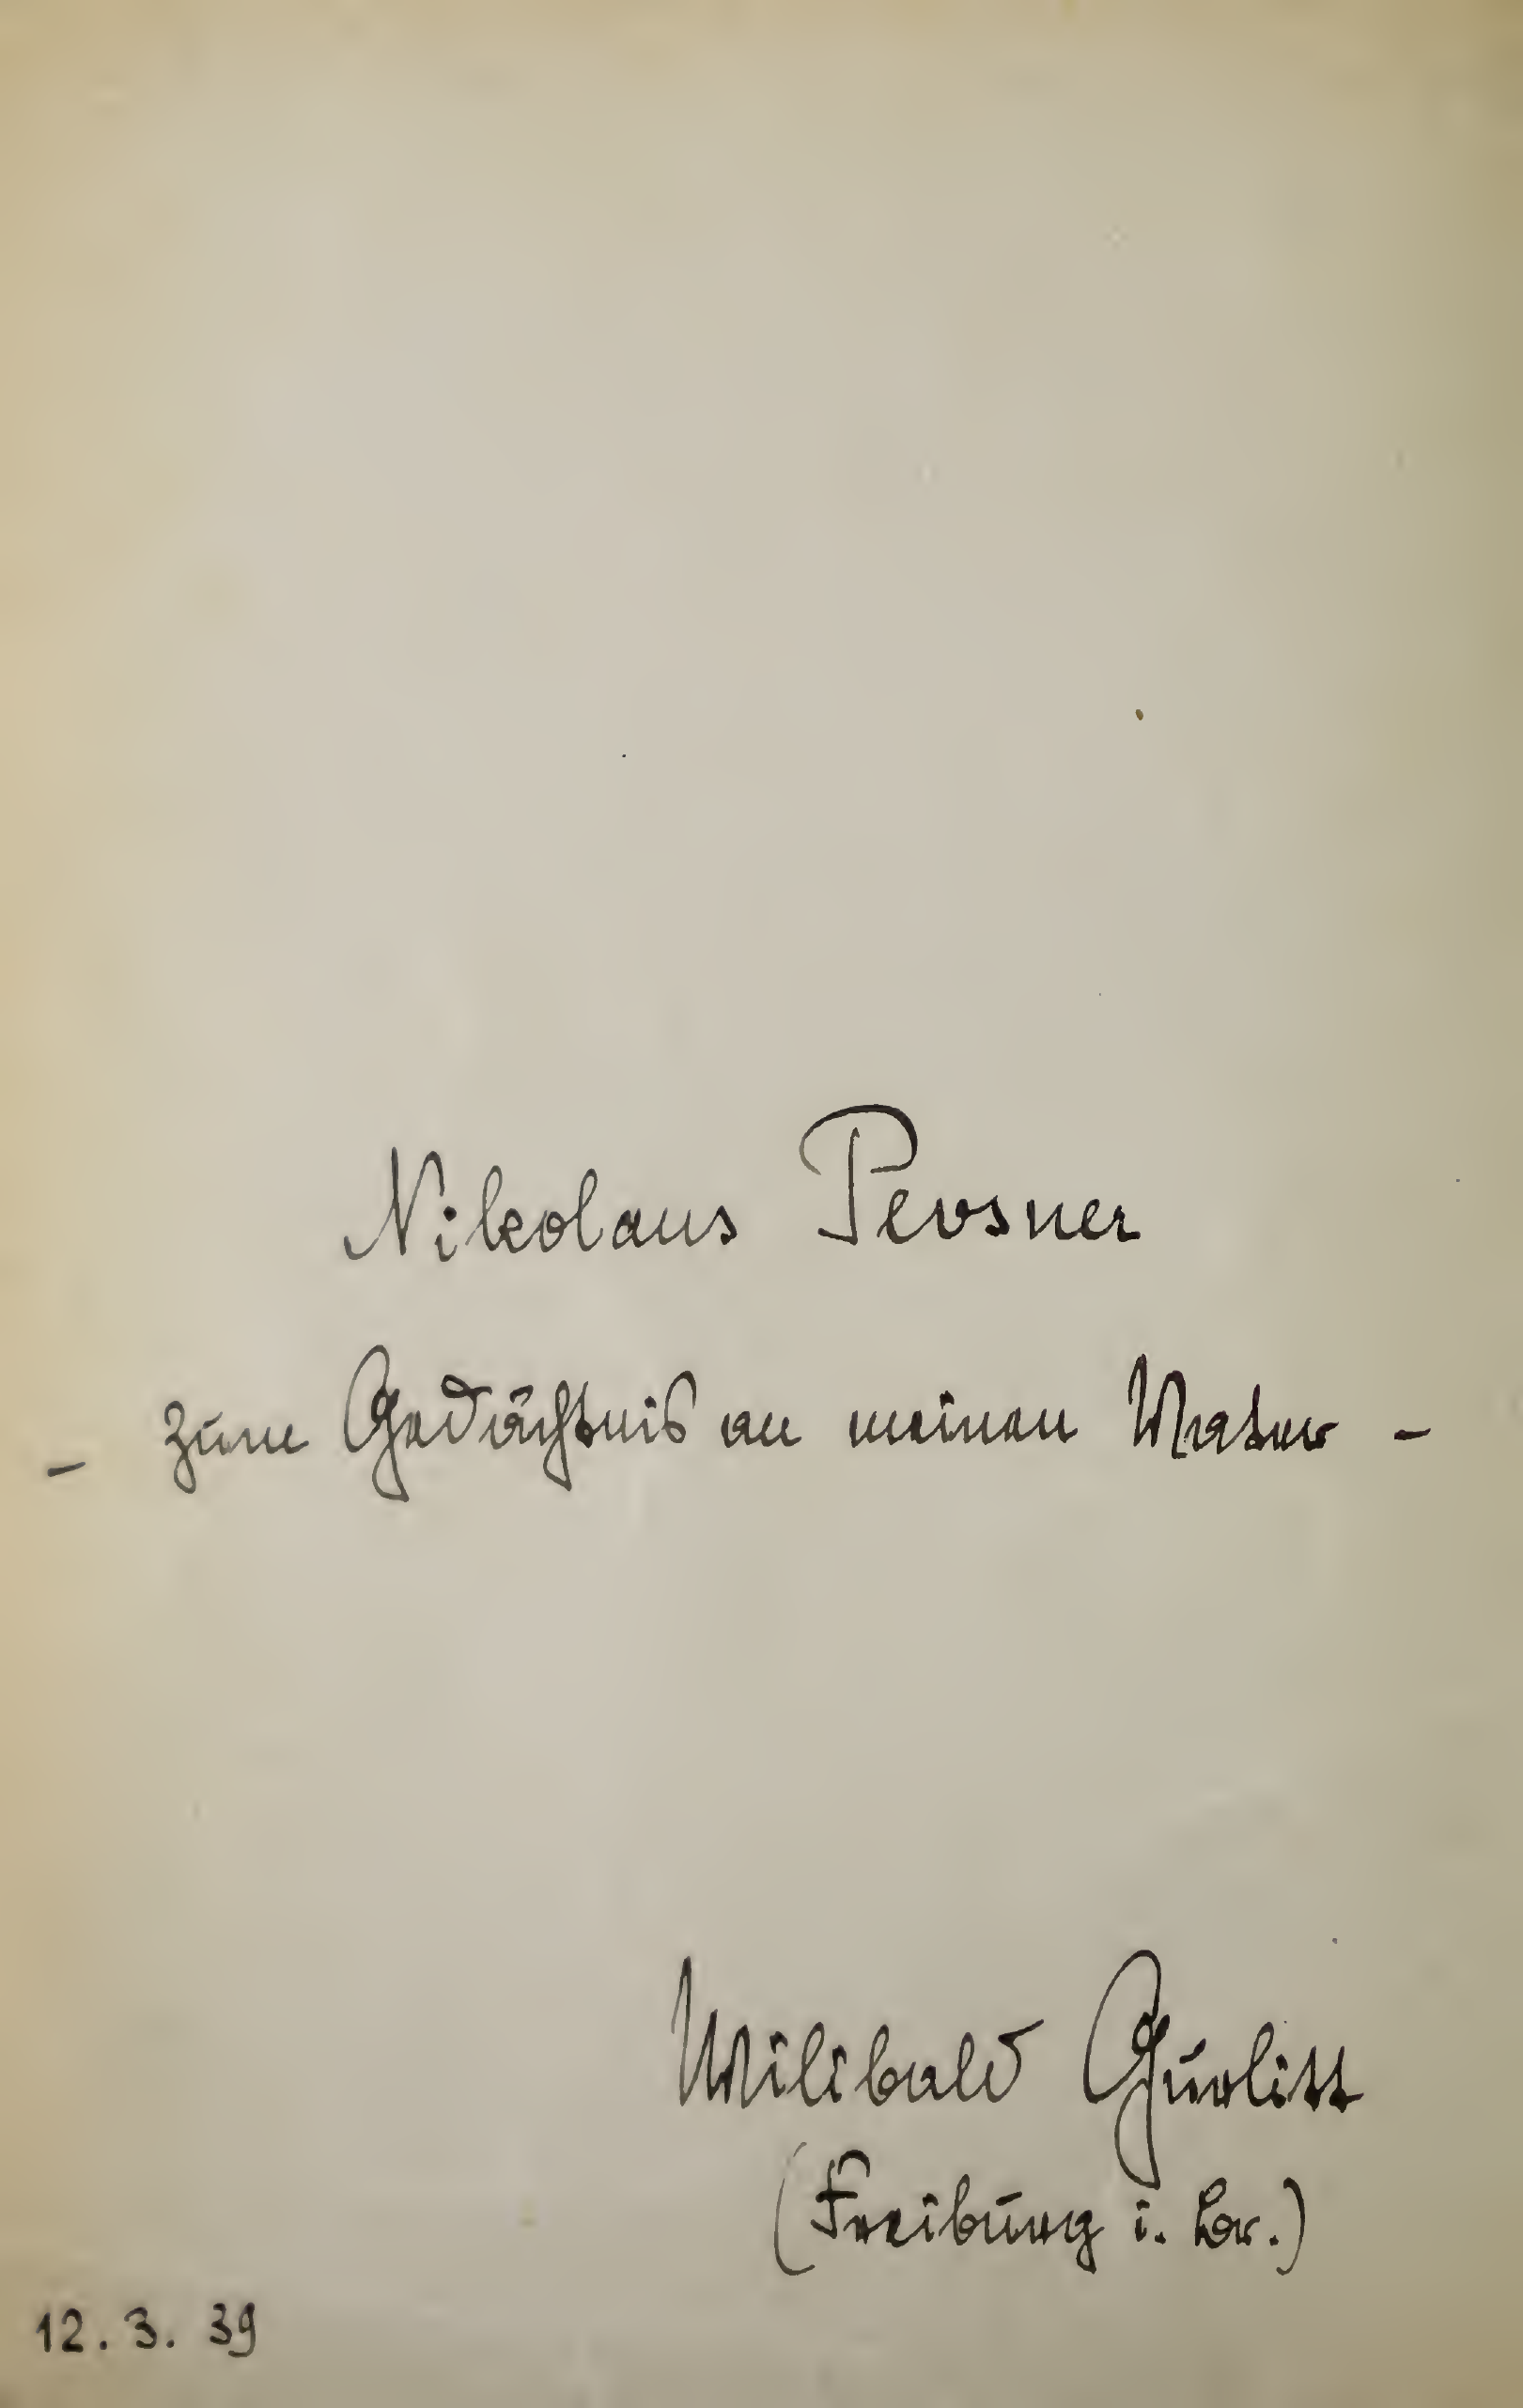 Nikolaus Pevsner
– zum Gedächtnis an meinen Vater –
Wilibald Gurlitt
(Freiburg i. Br.)
12. 3. 39